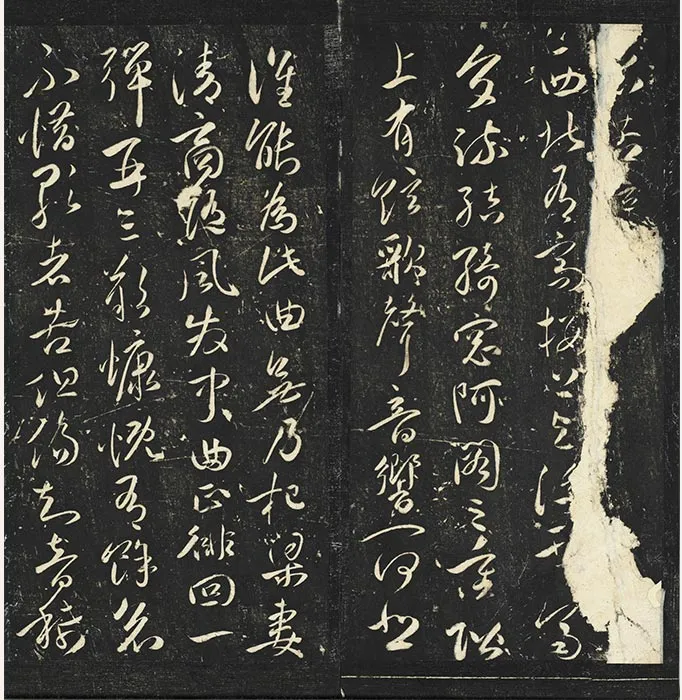 西北有高樓上與浮雲齊
交疏結綺窓阿閣三重階
上有絃歌聲音響一何悲
誰能為此曲無乃杞梁妻
清商隨風發中曲正徘回一
彈再三歎慷慨有餘哀
不惜歌者苦但傷知音稀